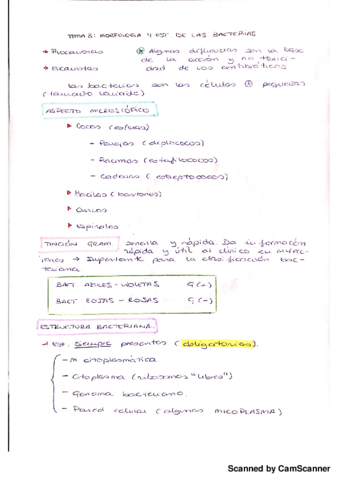 TEMA 3: MORFOLOGIA Y EST DE LAS BACTERIAS
→ Procariotas ⊛ Algunas diferencias son la base
de la acción y no toxici-
→ Eucariotas dad de los antibióticos
Las bacterias son las células pequeñas
(tamaño variado)
ASPECTO MICROSCÓPICO
▸ Cocos (esferas)
- Parejas (diplococos)
- Racimos (estafilococos)
- Cadenas (estreptococos)
▸ Bacilos (bastones)
▸ Curvos
▸ Espirales
TINCIÓN GRAM sencilla y rápida. Da información
rápida y útil al clínico en infecc-
iones → Importante para la clasificación bac-
teriana
BACT AZULES - VIOLETAS G(+)
BACT ROJAS - ROSAS G(-)
ESTRUCTURA BACTERIANA
→ Est. siempre presentes (obligatorias).
- m citoplasmática
- Citoplasma (ribosomas "libres")
- Genoma bacteriano.
- Pared celular (algunas MICOPLASMA)
Scanned by CamScanner